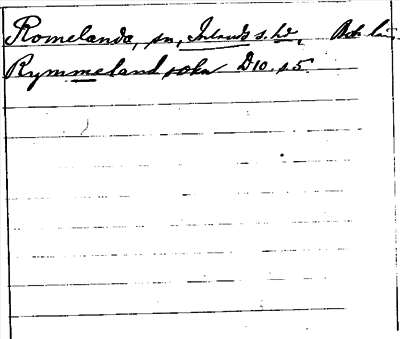 Romelanda, sn, Inlands s. hd, Boh län.
Rymmeland sokn D10. s5.